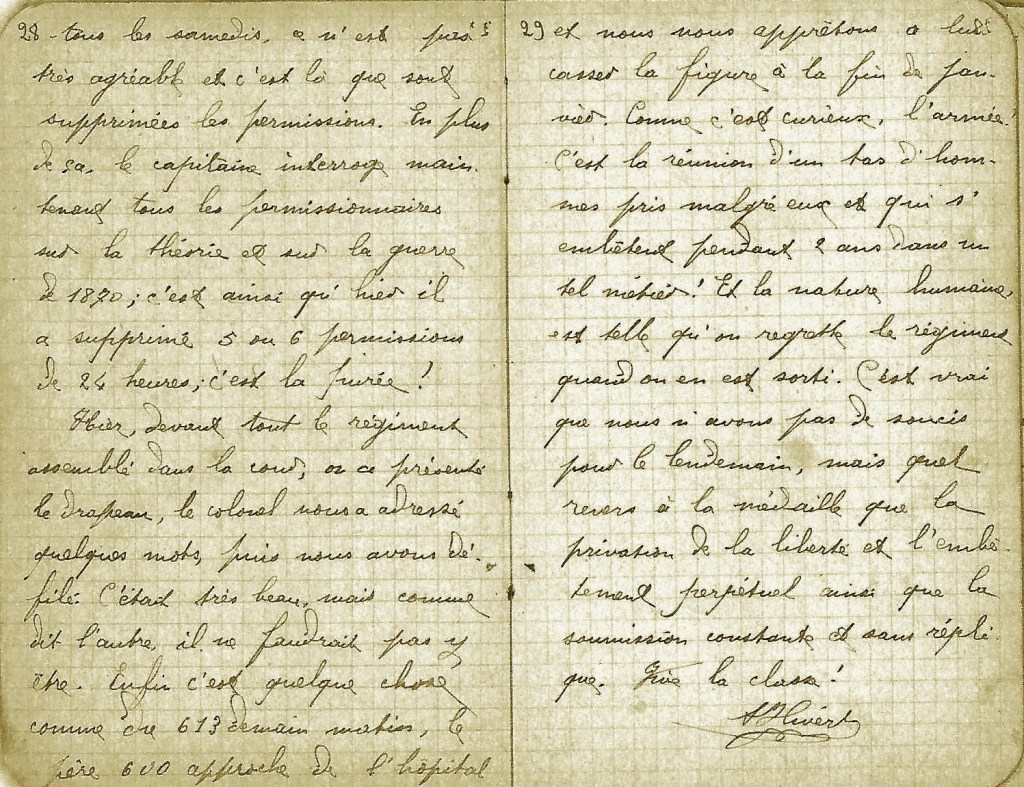 28 tous les samedis, ce n'est pas
très agréable et c'est là que sont
supprimées les permissions. En plus
de ça, le capitaine interroge main-
tenant tous les permissionnaires
sur la théorie et sur la guerre
de 1870; c'est ainsi qu'hier il
a supprimé 5 ou 6 permissions
de 24 heures; c'est la purée!
Hier, devant tout le régiment
assemblé dans la cour, on a présenté
le drapeau, le colonel nous a adressé
quelques mots, puis nous avons dé-
filé. C'était très beau, mais comme
dit l'autre, il ne faudrait pas y
être. Enfin c'est quelque chose
comme 613 demain matin, le
père 600 approche de l'hôpital
29 et nous nous apprêtons à lui
casser la figure à la fin de jan-
vier. Comme c'est curieux, l'armée!
C'est la réunion d'un tas d'hom-
mes pris malgré eux et qui s'
embêtent pendant 2 ans dans un
tel métier! Et la nature humaine
est telle qu'on regrette le régiment
quand on en est sorti. C'est vrai
que nous n'avons pas de soucis
pour le lendemain, mais quel
revers à la médaille que la
privation de la liberté et l'embê-
tement perpétuel ainsi que la
soumission constante et sans répli-
que. Vive la classe!
Hivert